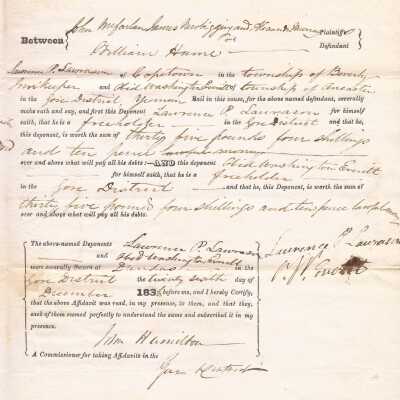 John McFarlan James
Plaintiffs
Between
vs
Defendant
William Hume
Lawrence P. Lawrason of Copetown in the township of Beverly
Innkeeper and Obed Washington Everitt of township of Ancaster
in the Gore District Yeoman Bail in this cause, for the above named defendant, severally
make oath and say, and first this Deponent Lawrence P. Lawrason for himself
saith, that he is a freeholder in the Gore District and that he,
this deponent, is worth the sum of thirty five pounds four shillings
and ten pence lawful money
over and above what will pay all his debts :—AND this deponent Obed Washington Everitt
for himself saith, that he is a freeholder
in the Gore District and that he, this Deponent, is worth the sum of
thirty five pounds four shillings and ten pence lawful money
over and above what will pay all his debts.
The above-named Deponents Lawrence P. Lawrason
and Obed Washington Everitt
were severally sworn at Dundas in the
Gore District the twenty sixth day of
December 183 before me, and I hereby Certify,
that the above Affidavit was read, in my presence, to them, and that they,
each of them seemed perfectly to understand the same and subscribed it in my
presence.
John Hamilton
A Commissioner for taking Affidavits in the
Gore District
Lawrence P Lawrason
O W Everitt